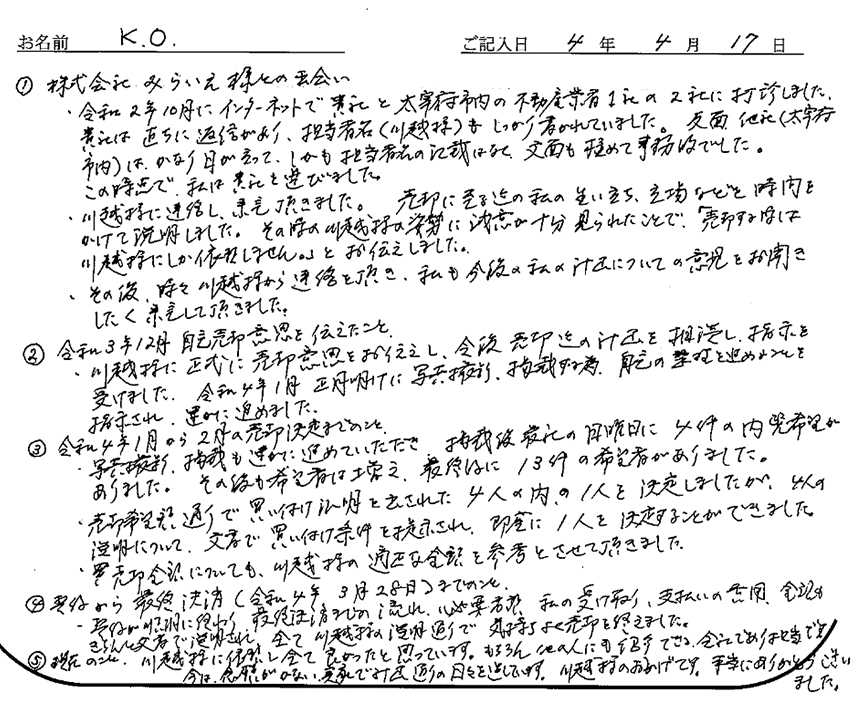 お名前 K.O. ご記入日 4 年 4 月 17 日
① 株式会社 みらいえ様との出会い
・令和2年10月にインターネットで貴社と太宰府市内の不動産業者1社の2社に打診しました。
貴社は直ちに返信があり、担当者名(川越様)もしっかり書かれていました。文面、他社(太宰府
市内)は、かなり日が立って、しかも担当者名の記載はなく、文面も極めて事務的でした。
この時点で、私は貴社を選びました。
・川越様に連絡し、来宅頂きました。売却に至る迄の私の生い立ち、立場などを時間を
かけて説明しました。その時の川越様の姿勢に誠意が十分見られたことで、「売却する時は
川越様にしか依頼しません。」とお伝えしました。
・その後、時々川越様から連絡を頂き、私も今後の私の計画についての意見をお聞き
したく来宅して頂きました。
② 令和3年12月 自宅売却意思を伝えたこと
・川越様に正式に売却意思をお伝えし、今後売却迄の計画を相談し、指示を
受けました。令和4年1月 正月明けに写真撮影、掲載する為、自宅の整理を進めることを
指示され、速かに進めました。
③ 令和4年1月から2月の売却決定までのこと
・写真撮影、掲載も速かに進めていただき 掲載後最初の日曜日に4件の内覧希望が
ありました。その後も希望者は増え、最終的に13件の希望者がありました。
・売却希望額通りで買い付け証明を出された4人の内の1人を決定しましたが、4人の
証明について、文書で買い付け条件を提示され、即座に1人を決定することができました。
・買売却金額についても、川越様の適正な金額を参考とさせて頂きました。
④ 契約から最終決済(令和4年、3月28日)までのこと
・契約が順調に終わり、最終決済までの流れ、必要書類、私の受け取り、支払いの費用、金額も
きちんと文書で説明され、全て川越様の説明通りで気持ちよく売却を終えました。
⑤ 現在のこと 川越様に依頼し全て良かったと思っています。もちろん他の人にも紹介できる会社であり担当です
今は、心配がない、充実で計画通りの日々を過しています。川越様のおかげです。本当にありがとうござい
ました。